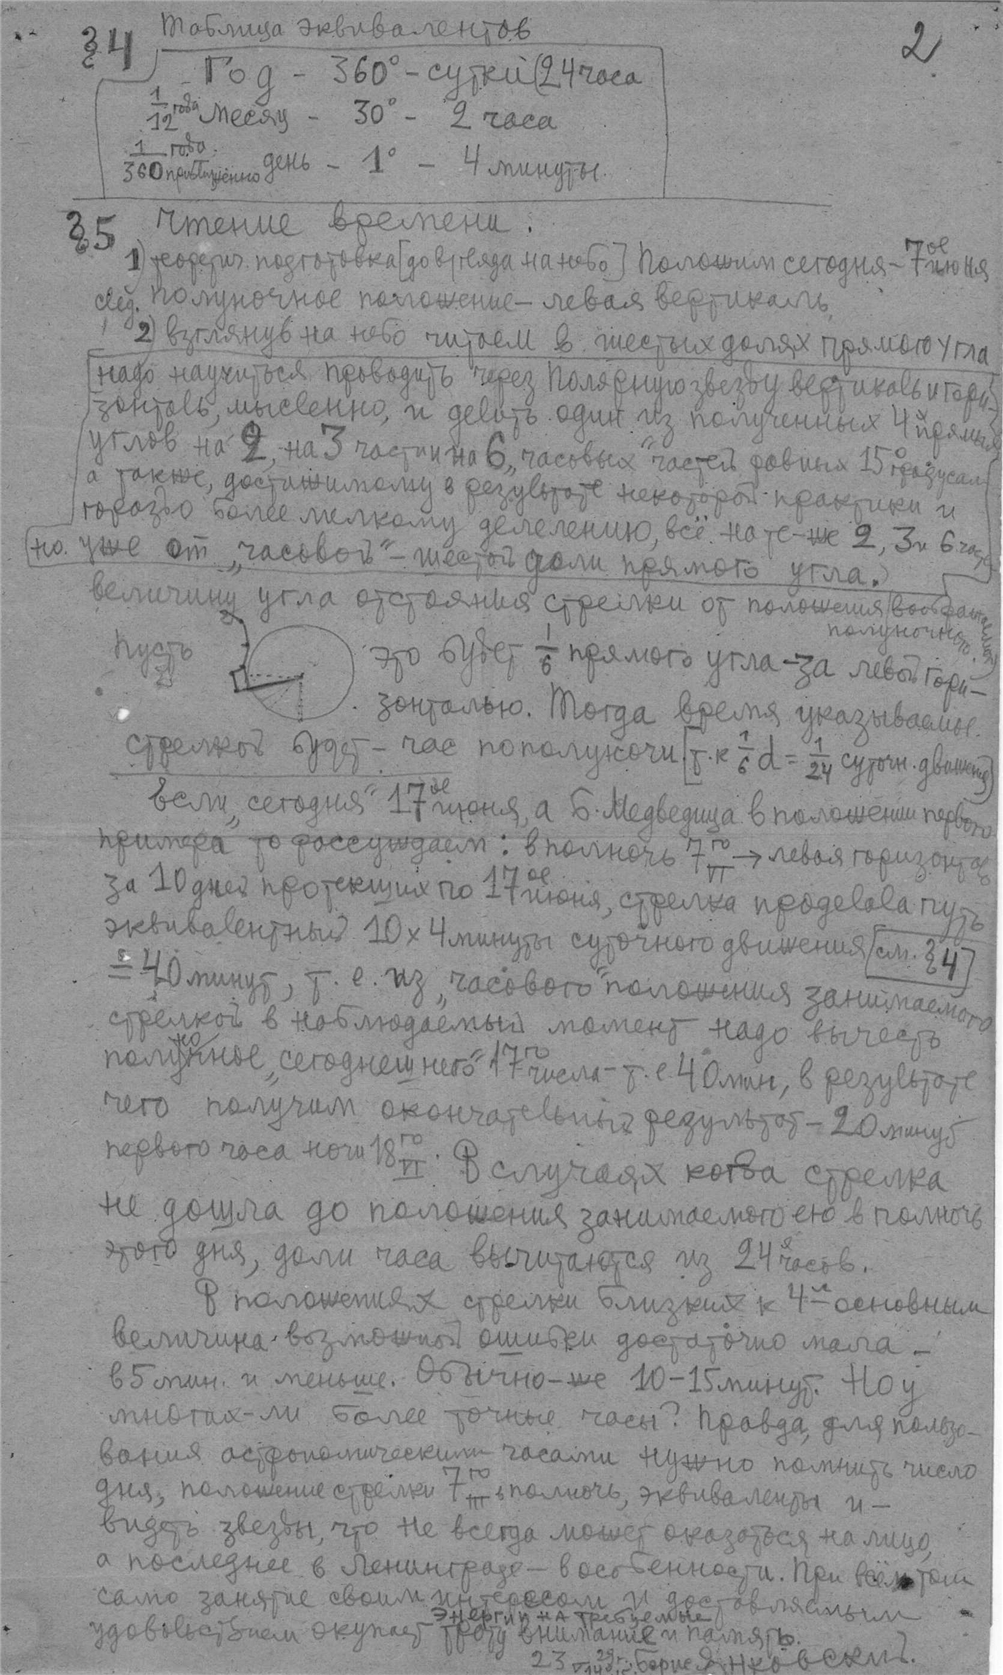 §4 Таблица эквивалентов 2
Год - 360° - сутки (24 часа
1/12 года Месяц - 30° - 2 часа
1/360 года приближённо день - 1° - 4 минуты.
§5 Чтение времени.
1) теоретич. подготовка [до взгляда на небо] Положим сегодня - 7ое июня
след. полуночное положение - левая вертикаль,
2) взглянув на небо читаем в шестых долях прямого угла
надо научиться проводить через Полярную звезду вертикаль и гори-
зонталь, мысленно, и делить один из полученных 4х прямых
углов на 2, на 3 части и на 6 „часовых" частей равных 15° градусам
а также, достижимому в результате некоторой практики и
гораздо более мелкому делелению, всё на те-же 2, 3 и 6 частей
но. уже от „часовой" - шестой доли прямого угла.
величину угла отстояния стрелки от положения воображаемого
полуночного.
Пусть это будет 1/6 прямого угла - за левой гори-
зонталью. Тогда время указываемое
стрелкой будет - час пополуночи [т.к 1/6 d = 1/24 суточн. движения]
Если „сегодня" 17ое июня, а Б. Медведица в положении первого
примера то рассуждаем: в полночь 7го VI → левая горизонталь
за 10 дней протекших по 17ое июня, стрелка проделала путь
эквивалентный 10 x 4 минуты суточного движения [см. §4]
= 40 минут, т.е. из „часового" положения занимаемого
стрелкой в наблюдаемый момент надо вычесть
полуночное „сегоднешнего" 17го числа - т.е 40 мин, в результате
чего получим окончательный результат - 20 минут
первого часа ночи 18го VI. В случаях когда стрелка
не дошла до положения занимаемого ею в полночь
этого дня, доли часа вычитаются из 24х часов.
В положениях стрелки близких к 4м основным
величина возможной ошибки достаточно мала -
в 5 мин. и меньше. Обычно-же 10-15 минут. Но у
многих-ли более точные часы? Правда, для пользо-
вания астрономическими часами нужно помнить число
дня, положение стрелки 7го III в полночь, эквиваленты и -
видеть звезды, что не всегда может оказаться на лицо,
а последнее в Ленинграде - в особенности. При всём том
само занятие своим интересом и доставляемым
удовольствием окупает трату энергии на требуемые внимание и память.
23 Борис Янковский.